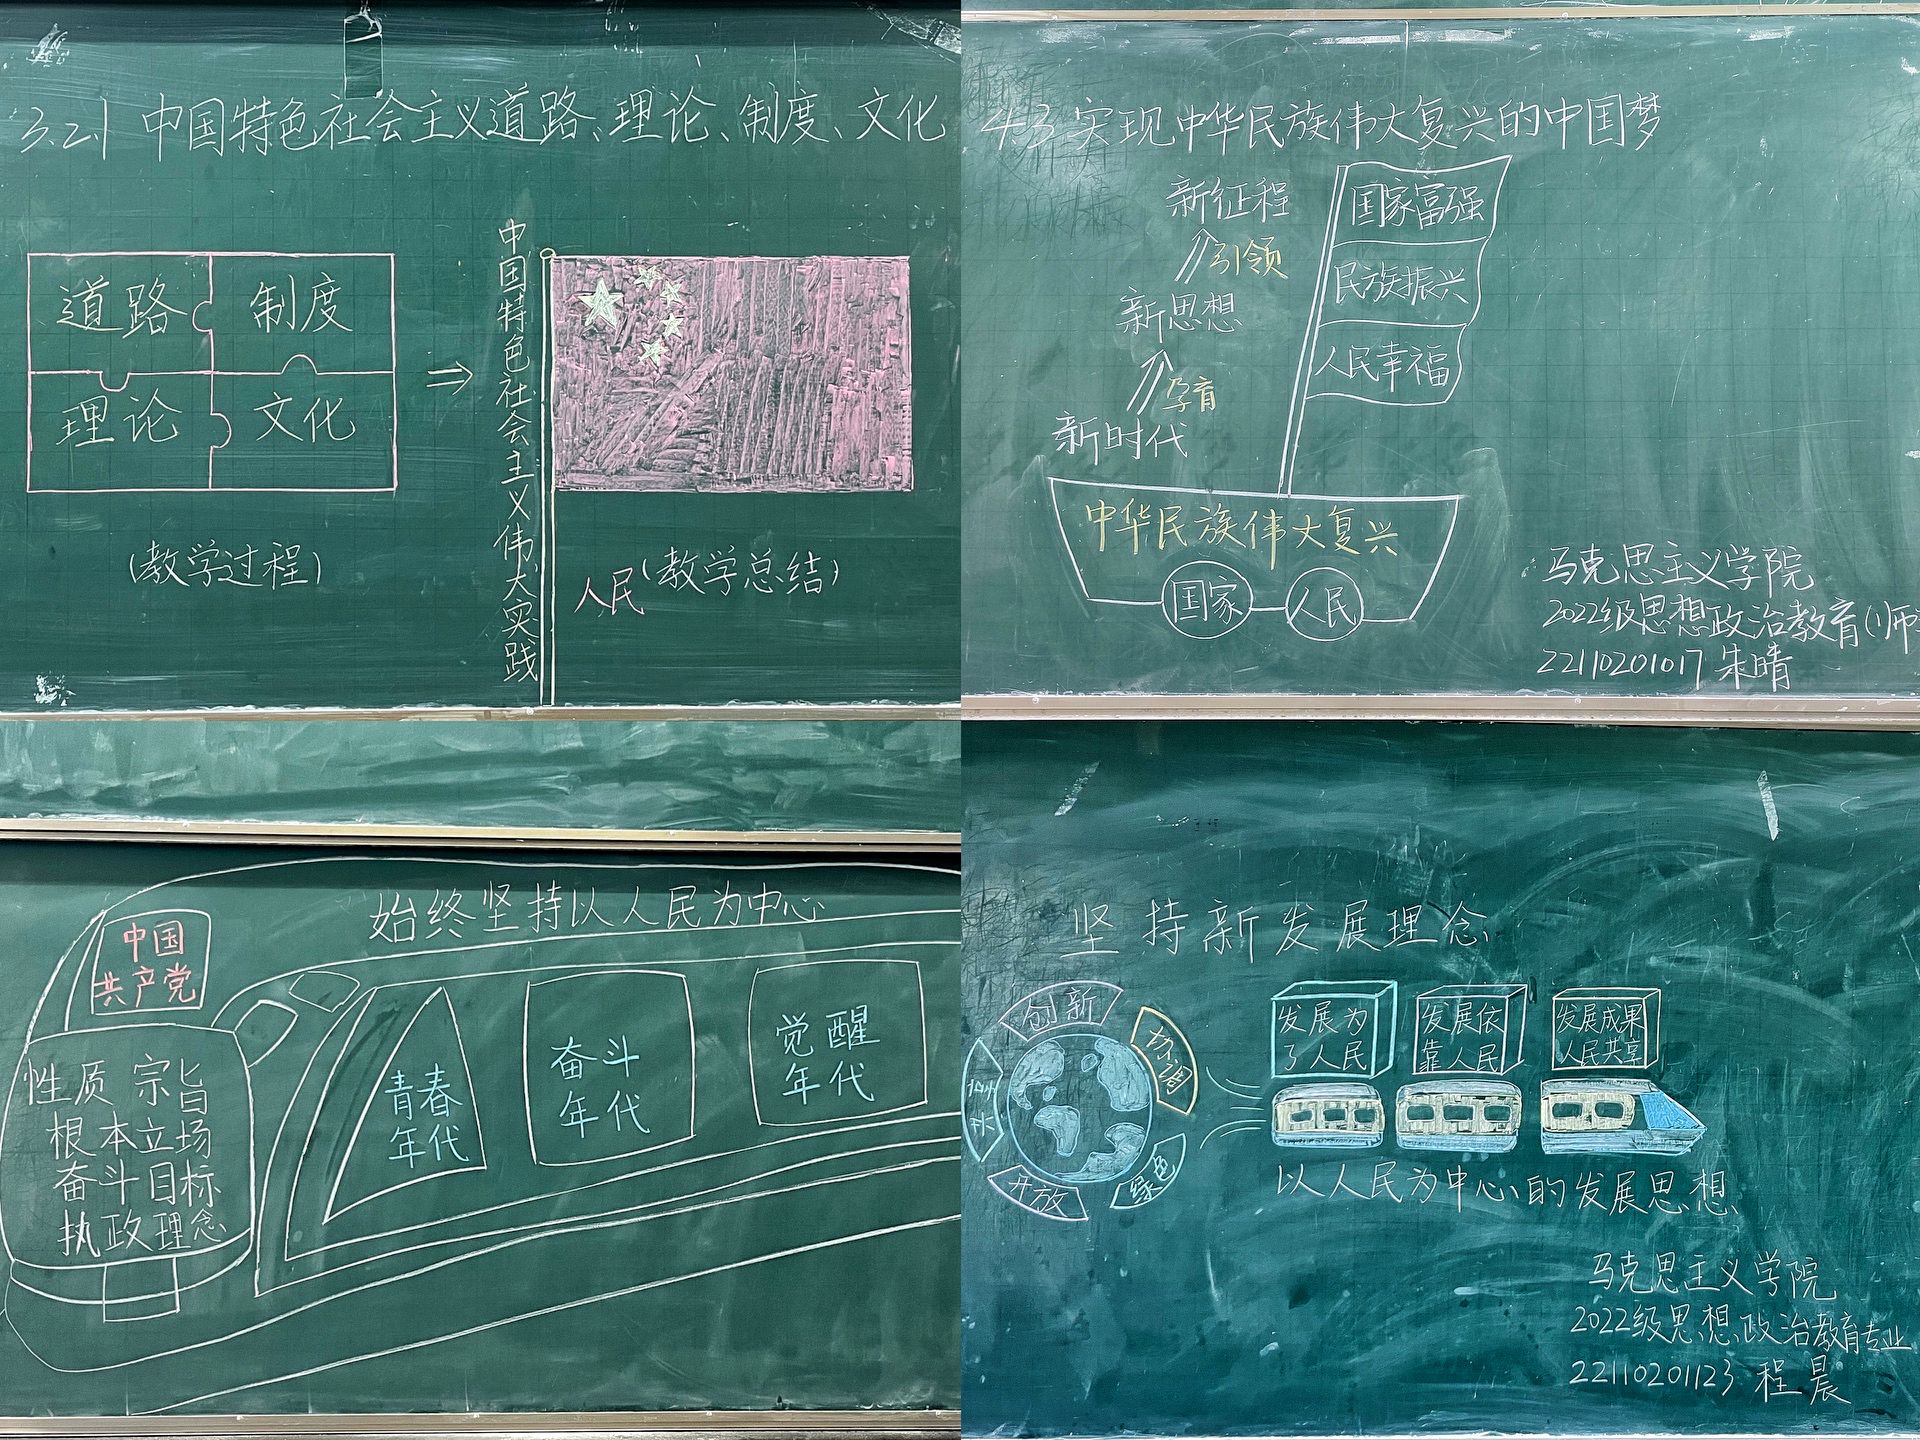 3.2.1 中国特色社会主义道路、理论、制度、文化
道路
制度
理论
文化
(教学过程)
⇒
中国特色社会主义伟大实践
人民
(教学总结)
4.3 实现中华民族伟大复兴的中国梦
新征程
引领
新思想
孕育
新时代
国家富强
民族振兴
人民幸福
中华民族伟大复兴
国家
人民
马克思主义学院
2022级思想政治教育(1)师
22110201017 朱晴
始终坚持以人民为中心
中国
共产党
性质 宗旨
根本立场
奋斗目标
执政理念
青春
年代
奋斗
年代
觉醒
年代
坚持新发展理念
创新
协调
绿色
开放
发展为
了人民
发展依
靠人民
发展成果
人民共享
以人民为中心的发展思想
马克思主义学院
2022级思想政治教育专业
22110201123 程晨